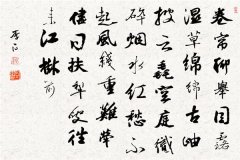 卷帘聊举目露
湿草绵绵古岫
披云毳空庭织
碎烟水红愁不
起风线重难牵
佳日扶犁叟往
来江树前